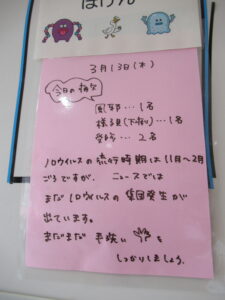 ほけん
3月13日(木)
今日の欠
風邪…1名
様子見(下痢)…1名
発咳…2名
ノロウイルスの流行時期は11月〜2月
ごろですが、ニュースでは
まだノロウイルスの集団発生が
出ています。
まだまだ手洗い
しっかりしましょう。